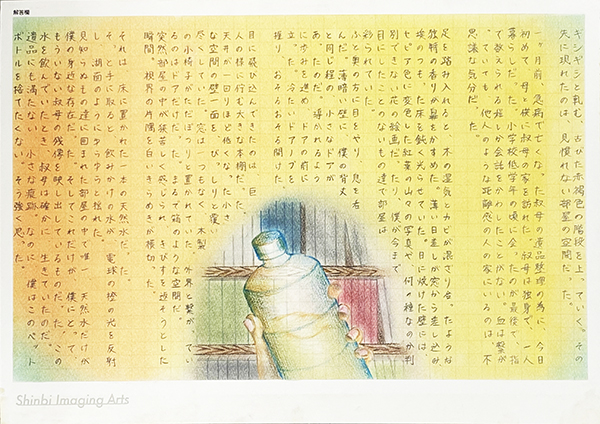 解答欄
ギシギシと軋む、古びた赤褐色の階段を上っていく。その
先に現れたのは、見慣れない部屋の空間だった。
一ヶ月前、急病で亡くなった叔母の遺品整理の為に、今日
初めて、母と僕は叔母の家を訪れた。叔母は独身で、一人
暮らしだった。小学校低学年の頃に会ったのが最後で、指
で数えられる程しか会話をかわしたことがない。血は繋が
っていても、他人のような距離感の人の家にいるのは、不
思議な気分だった。
足を踏み入れると、木の湿気とカビが混ざり合ったような
独特の香りが鼻をかすめた。薄い日差しが窓から差し込み
埃のもった床を鈍く光らせていた。日に焼けた壁には、
セピア色に変色した紅葉の山々の写真や、何の種なのか判
別できない花の絵画だったり、僕が今まで
目にしたことのない物達で部屋は
彩られていた。
ふと奥の方に目をやり、息を右
んだ。薄暗い壁に、僕の背丈
と同じ程の、小さなドアが
あったのだ。導かれるよう
に歩みを進め、ドアの前に
立った。冷たいドアノブを
握り、おそるおそる開けた。
目に飛び込んできたのは、巨
人の様に佇む大きな本棚だった。
天井が一回りほど低くなった小さ
な空間の壁一面を、びっしりと覆い
尽くしていた。窓は一つもなく、木製
の小椅子がただぽつりと置かれていた。外界と繋がってい
るのはドアだけだ。まるで箱のような空間だ。
突然部屋の中が狭苦しく感じられ、きびすを返そうとした
瞬間、視界の片隅を白いきらめきが横切った。
それは、床に置かれた一本の天然水だった。
そっと手に取ると、飲みかけの水が、電球の橙の光を反射
し、湖面のようにゆらゆらと揺れた。
見知らぬもの達に囲まれた部屋で唯一、天然水だけが
僕の身近な存在だった。そしてこれだけが、僕にとって
もういない叔母の残像を映し出しているものだった。この
水を飲んでいたとき、叔母は確かに、生きていたんだ。
遺品にも満たない、小さな痕跡。なのに、僕はこのペット
ボトルを捨てたくない。そう強く思った。
Shinbi Imaging Arts